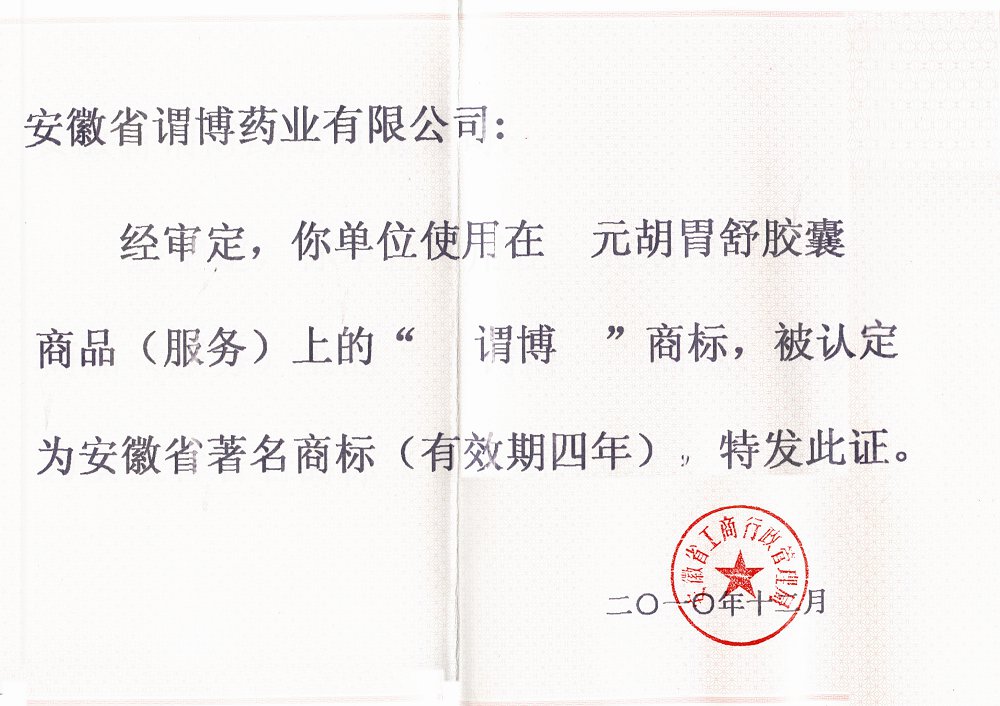 安徽省谓博药业有限公司:
经审定，你单位使用在 元胡胃舒胶囊
商品（服务）上的“ 谓博 ”商标，被认定
为安徽省著名商标（有效期四年）。特发此证。
安徽省工商行政管理局
二〇一〇年十二月